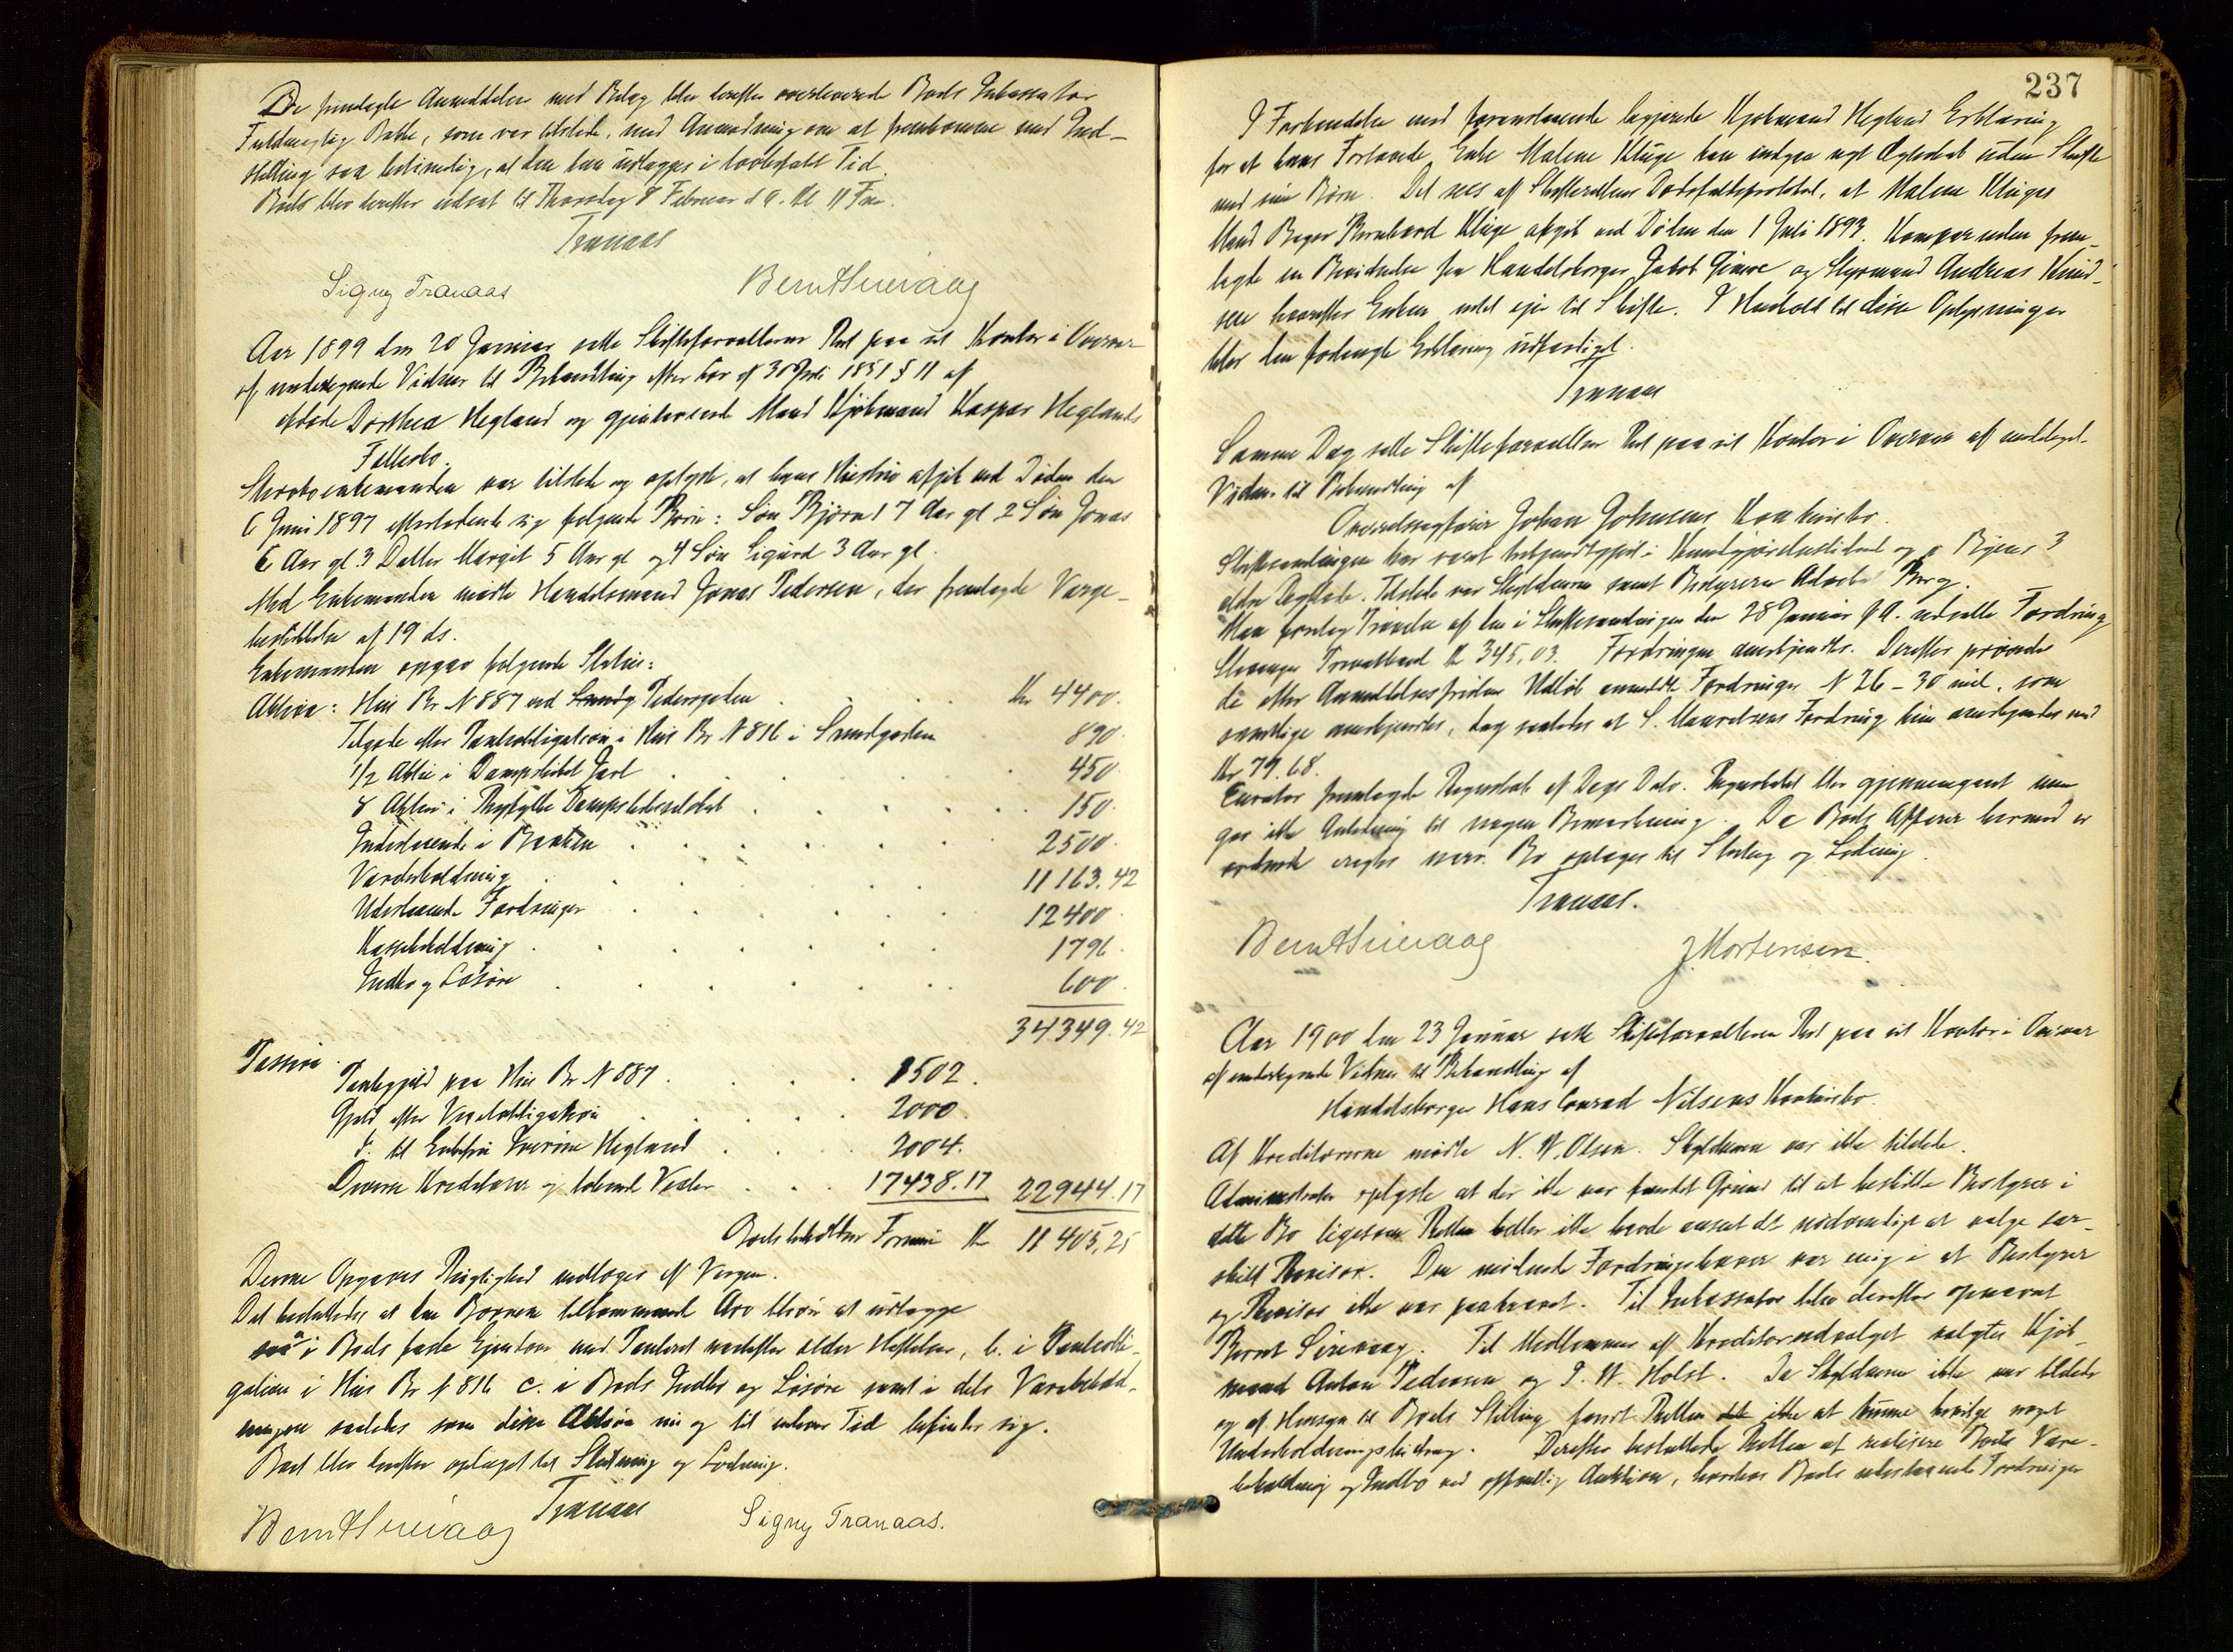 De fremlagte Anmeldelser med Bilag blev derefter overleverede Boets Inkassator
Fuldmægtig Bakke, som var tilstede, med Anmodning om at fremkomme med Ind-
stilling saa betimelig, at den kan udlægges i lovbefalt Tid.
Boet blev derefter udsat til Thorsdag 8 Februar d. A. Kl 11 Fm.
Tranaas
Signy Tranaas BerntSirevaag
Aar 1899 den 20 Januar satte Skifteforvalteren Ret paa sit Kontor i Overvær
af undertegnede Vidner til Behandling efter Lov af 30 Juli 1851 § 11 af
afdøde Dorthea Hegland og gjenlevende Mand Kjøbmand Kaspar Heglands
Fællesbo.
Stervboenkemanden var tilstede og oplyste, at hans Hustru afgik ved Døden den
6 Juni 1897 efterladende sig følgende Børn: Søn Bjørn 17 Aar gl 2 Søn Jonas
6 Aar gl. 3 Datter Margit 5 Aar gl og 4 Søn Sigurd 3 Aar gl.
Med Enkemanden mødte Handelsmand Jonas Pedersen, der fremlagde Værge-
beskikkelse af 19 ds.
Enkemanden opgav følgende Status:
Aktiva: Hus Br N 887 ved Pedersgaden Kr 4400.
Tilgode efter Panteobligation i Hus Br N 816 i Sandgaden 890.
1/2 Aktie i Dampskibet Jarl 450.
8 Aktier i Ryfylke Dampskibsselskab 150.
Indestaaende i Banken 2500.
Varebeholdning 11163.42
Udestaaende Fordringer 12400.
Kassebeholdning 1796.
Indbo og Løsøre 600.
34349.42
Passiva.
Pantegjæld paa Hus Br N 887 1502.
Gjæld efter Vexelobligation 2000.
d. til Enkefru Hegland 2004.
Diverse Kreditorer og løbende Vexler 17438.17 22944.17
Boets beholdne Formue Kr 11405,25
Denne Opgaves Rigtighed vedtoges af Værgen.
Det besluttedes at den Børnene tilkommende Arv bliver at udlægge
i Boets faste Eiendom med Panteret næstefter ældre Heftelser, b. i Panteobli-
gation i Hus Br N 816 c. i Boets Indbo og Løsøre samt i dets Varebehold-
ninger saaledes som disse Aktiva nu og til enhver Tid befinder sig.
Boet blev derefter optaget til Slutning og Lodning.
BerntSirevaag Tranaas Signy Tranaas.
237
I Forbindelse med foranstaaende begjærede Kjøbmand Hegland Erklæring
for at hans Forlovede Enke Malene Kluge kan indgaa nyt Ægteskab uden Skifte
med sine Børn. Det sees af Skifterettens Dødsfaldsprotokol, at Malene Kluges
Mand Bager Bernhard Kluge afgik ved Døden den 1 Juli 1893. Komparenten frem-
lagde en Bevidnelse fra Handelsborger Jakob Gimre og Styrmand Andreas Knud-
sen hvorefter Enken intet ejer til Skifte. I Henhold til disse Oplysninger
blev den forlangte Erklæring udfærdiget.
Tranaas
Samme Dag satte Skifteforvalteren Ret paa sit Kontor i Overvær af undertegn.
Vidner til Behandling af
Overretssagfører Johan Johnsens Konkursbo.
Skiftesamlingen har været bekjendtgjort i Kundgjørelsestidende og i Byens 3
ældre Dagblade. Tilstede var Skyldneren samt Bestyreren Advokat Berg.
Man foretog Prøvelse af den i Skiftesamlingen den 28 Januar f. A. udsatte Fordring
Stavanger Privatbank Kr 345,03. Fordringen anerkjendtes. Derefter prøvedes
de efter Anmeldelsesfristens Udløb anmeldte Fordringer N 26 - 30 incl. som
samtlige anerkjendtes, dog saaledes at S. Fordring kun anerkjendtes med
Kr 79.68.
Curator fremlagde Regnskab af Dags Dato. Regnskabet blev gjennemgaaet men
gav ikke Anledning til nogen Bemærkning. Da Boets Affærer hermed er
ordnede Bo optages til Slutning og Lodning.
Tranaas.
BerntSirevaag J. Mortensen.
Aar 1900 den 23 Januar satte Skifteforvalteren Ret paa sit Kontor i Overvær
af undertegnede Vidner til Behandling af
Handelsborger Hans Conrad Nilsens Konkursbo.
Af Kreditorerne mødte N. W. Olsen. Skyldneren var ikke tilstede.
Administrator oplyste at der ikke var fundet Grund til at beskikke Bestyrer i
dette Bo ligesom Retten heller ikke havde anseet det nødvendigt at vælge sær-
skilt Revisor. Den mødende Fordringshaver var enig i at Bestyrer
og Revisor ikke var paakrævet. Til Inkassator blev derefter opnævnt
Bernt Sirevaag. Til Medlemmer af Kreditorudvalget valgtes Kjøb-
mand Anton Pedersen og P. W. Holst. Da Skyldneren ikke var tilstede
og af Hensyn til Boets Stilling fandt Retten ikke at kunne bevilge noget
Underholdningsbidrag. Derefter besluttede Retten at realisere Boets Vare-
beholdning og Indbo ved offentlig Auktion, hvorhos Boets udestaaende Fordringer